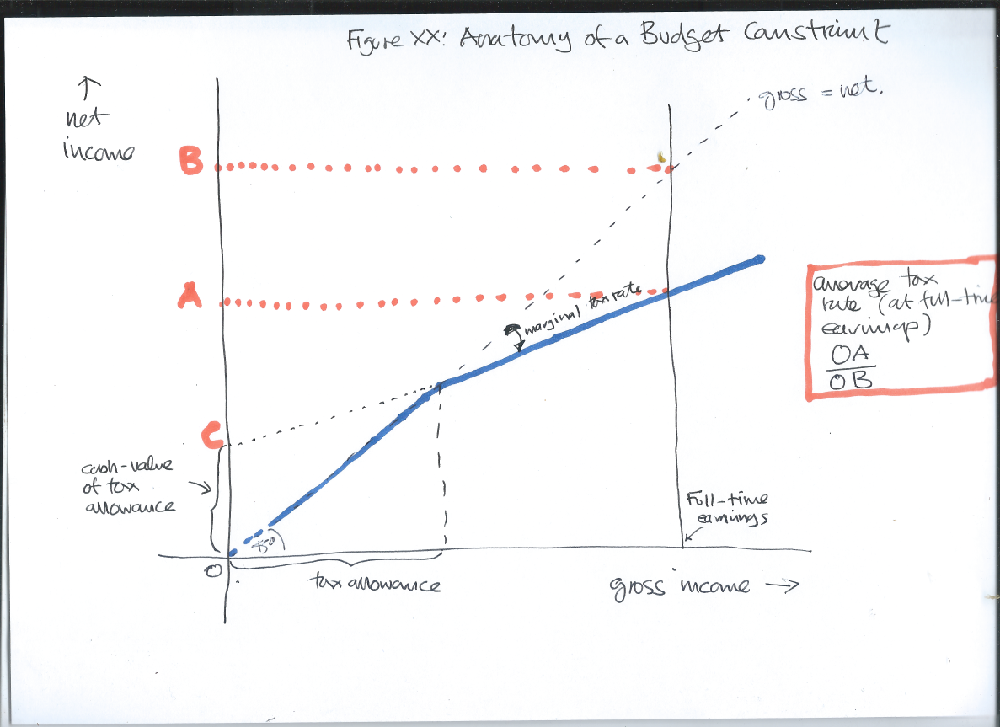 Figure XX: Anatomy of a Budget Constraint
↑
net
income
gross = net.
B
A
marginal tax rate
average tax
rate (at full-time
earnings)
OA
OB
C
cash-value
of tax
allowance
Full-time
earnings
45°
O
tax allowance
gross income →